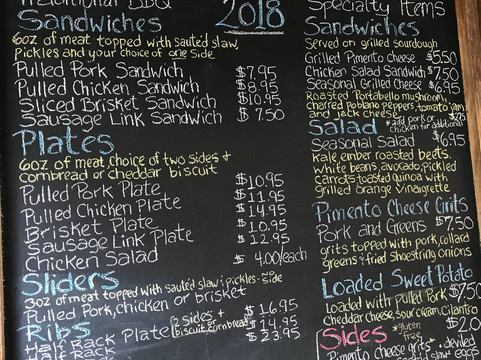 Traditional BBQ
2018
Sandwiches
6oz of meat topped with sautéd slaw,
pickles and your choice of one side
Pulled Pork Sandwich $7.95
Pulled Chicken Sandwich $8.95
Sliced Brisket Sandwich $10.95
Sausage Link Sandwich $7.50
Plates
6oz of meat, choice of two sides +
cornbread or cheddar biscuit
Pulled Pork Plate $10.95
Pulled Chicken Plate $11.95
Brisket Plate $14.95
Sausage Link Plate $10.95
Chicken Salad $12.95
Sliders $4.00/each
3oz of meat topped with sautéd slaw + pickles - no side
Pulled Pork, chicken or brisket
Ribs
Half Rack Plate [2 sides + biscuit/cornbread] $16.95
Half Rack $14.95
$23.95
Specialty Items
Sandwiches
Served on grilled sourdough
Grilled Pimento cheese $5.50
Chicken Salad Sandwich $7.50
Seasonal Grilled Cheese $6.95
Roasted Portabello mushroom,
charred Poblano peppers, tomato jam,
and jack cheese
Salad *add pork or chicken for additional $2.75
Seasonal Salad $6.95
kale, ember roasted beets,
white beans, avocado, pickled
carrots, toasted quinoa with
grilled orange vinaigrette
Pimento Cheese Grits
Pork and Greens $7.50
grits topped with pork, collard
greens + fried shoestring onions
Loaded Sweet Potato
Loaded with pulled Pork $7.50
cheddar cheese, sour cream, cilantro
Sides *gluten free $2.0
Pimento cheese grits* . deviled
eggs